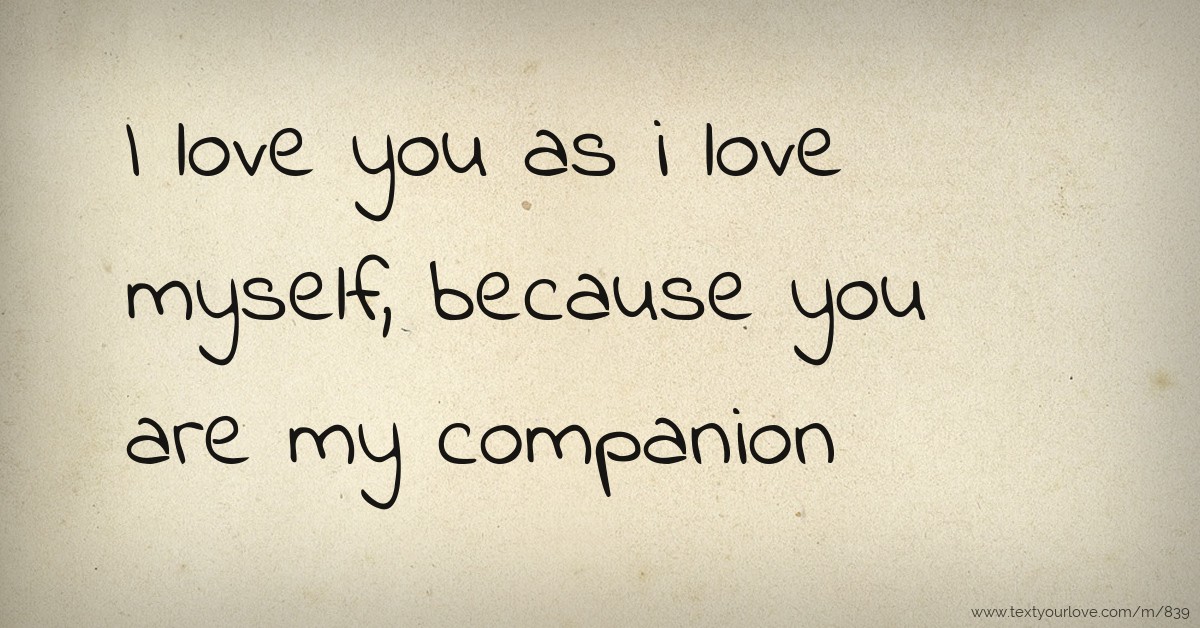 I love you as i love
myself, because you
are my companion
www.textyourlove.com/m/839